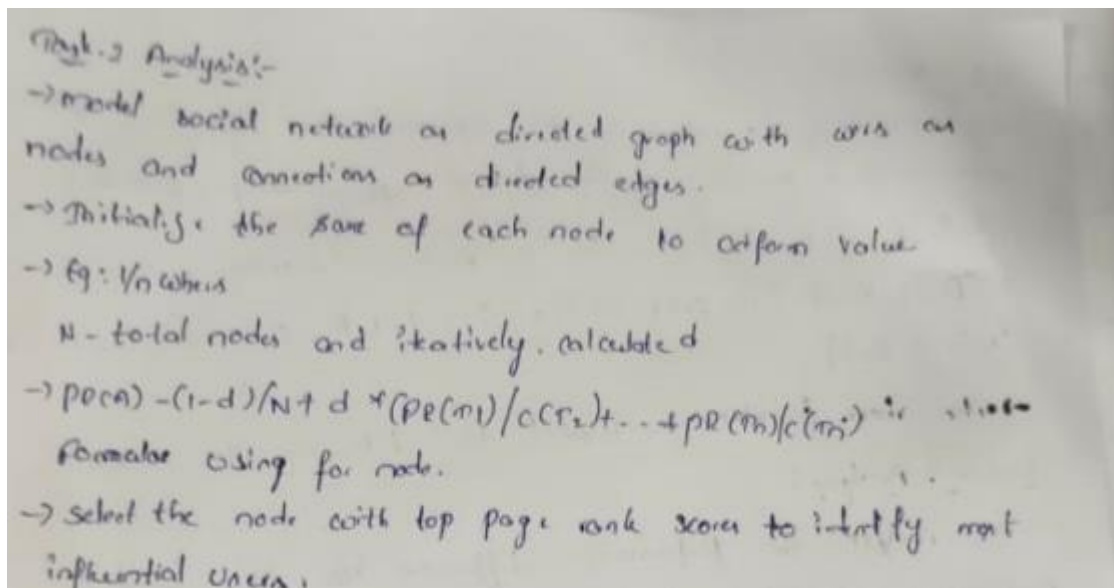 Task.2 Analysis:-
-> model social network as directed graph with users as
nodes and connections as directed edges.
-> Initialize the rank of each node to uniform value
-> Eg: 1/n where
N - total nodes and iteratively. calculated
-> PR(A) - (1-d)/N + d *(PR(T1)/c(T2)+...+PR(Tn)/c(Tn)
formulae using for node.
-> select the node with top page rank scores to identify most
influential users.